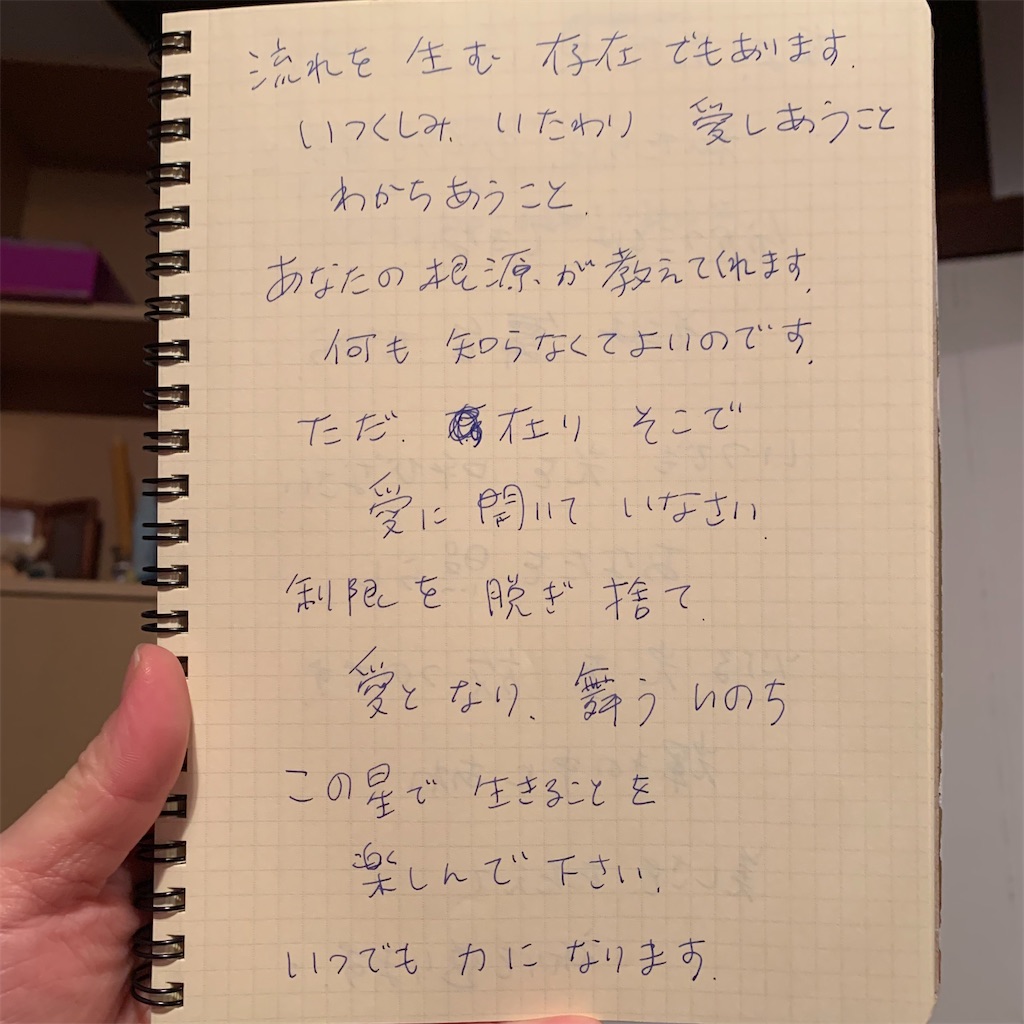 流れを 生む 存在 でもあります.
いつくしみ、いたわり 愛しあうこと
わかちあうこと.
あなたの根源が教えてくれます.
何も 知らなくてよいのです.
ただ、在り そこで
愛に 開いて いなさい.
制限を 脱ぎ 捨て.
愛となり、舞う いのち
この星で 生きることを
楽しんで下さい.
いつでも 力に なります.